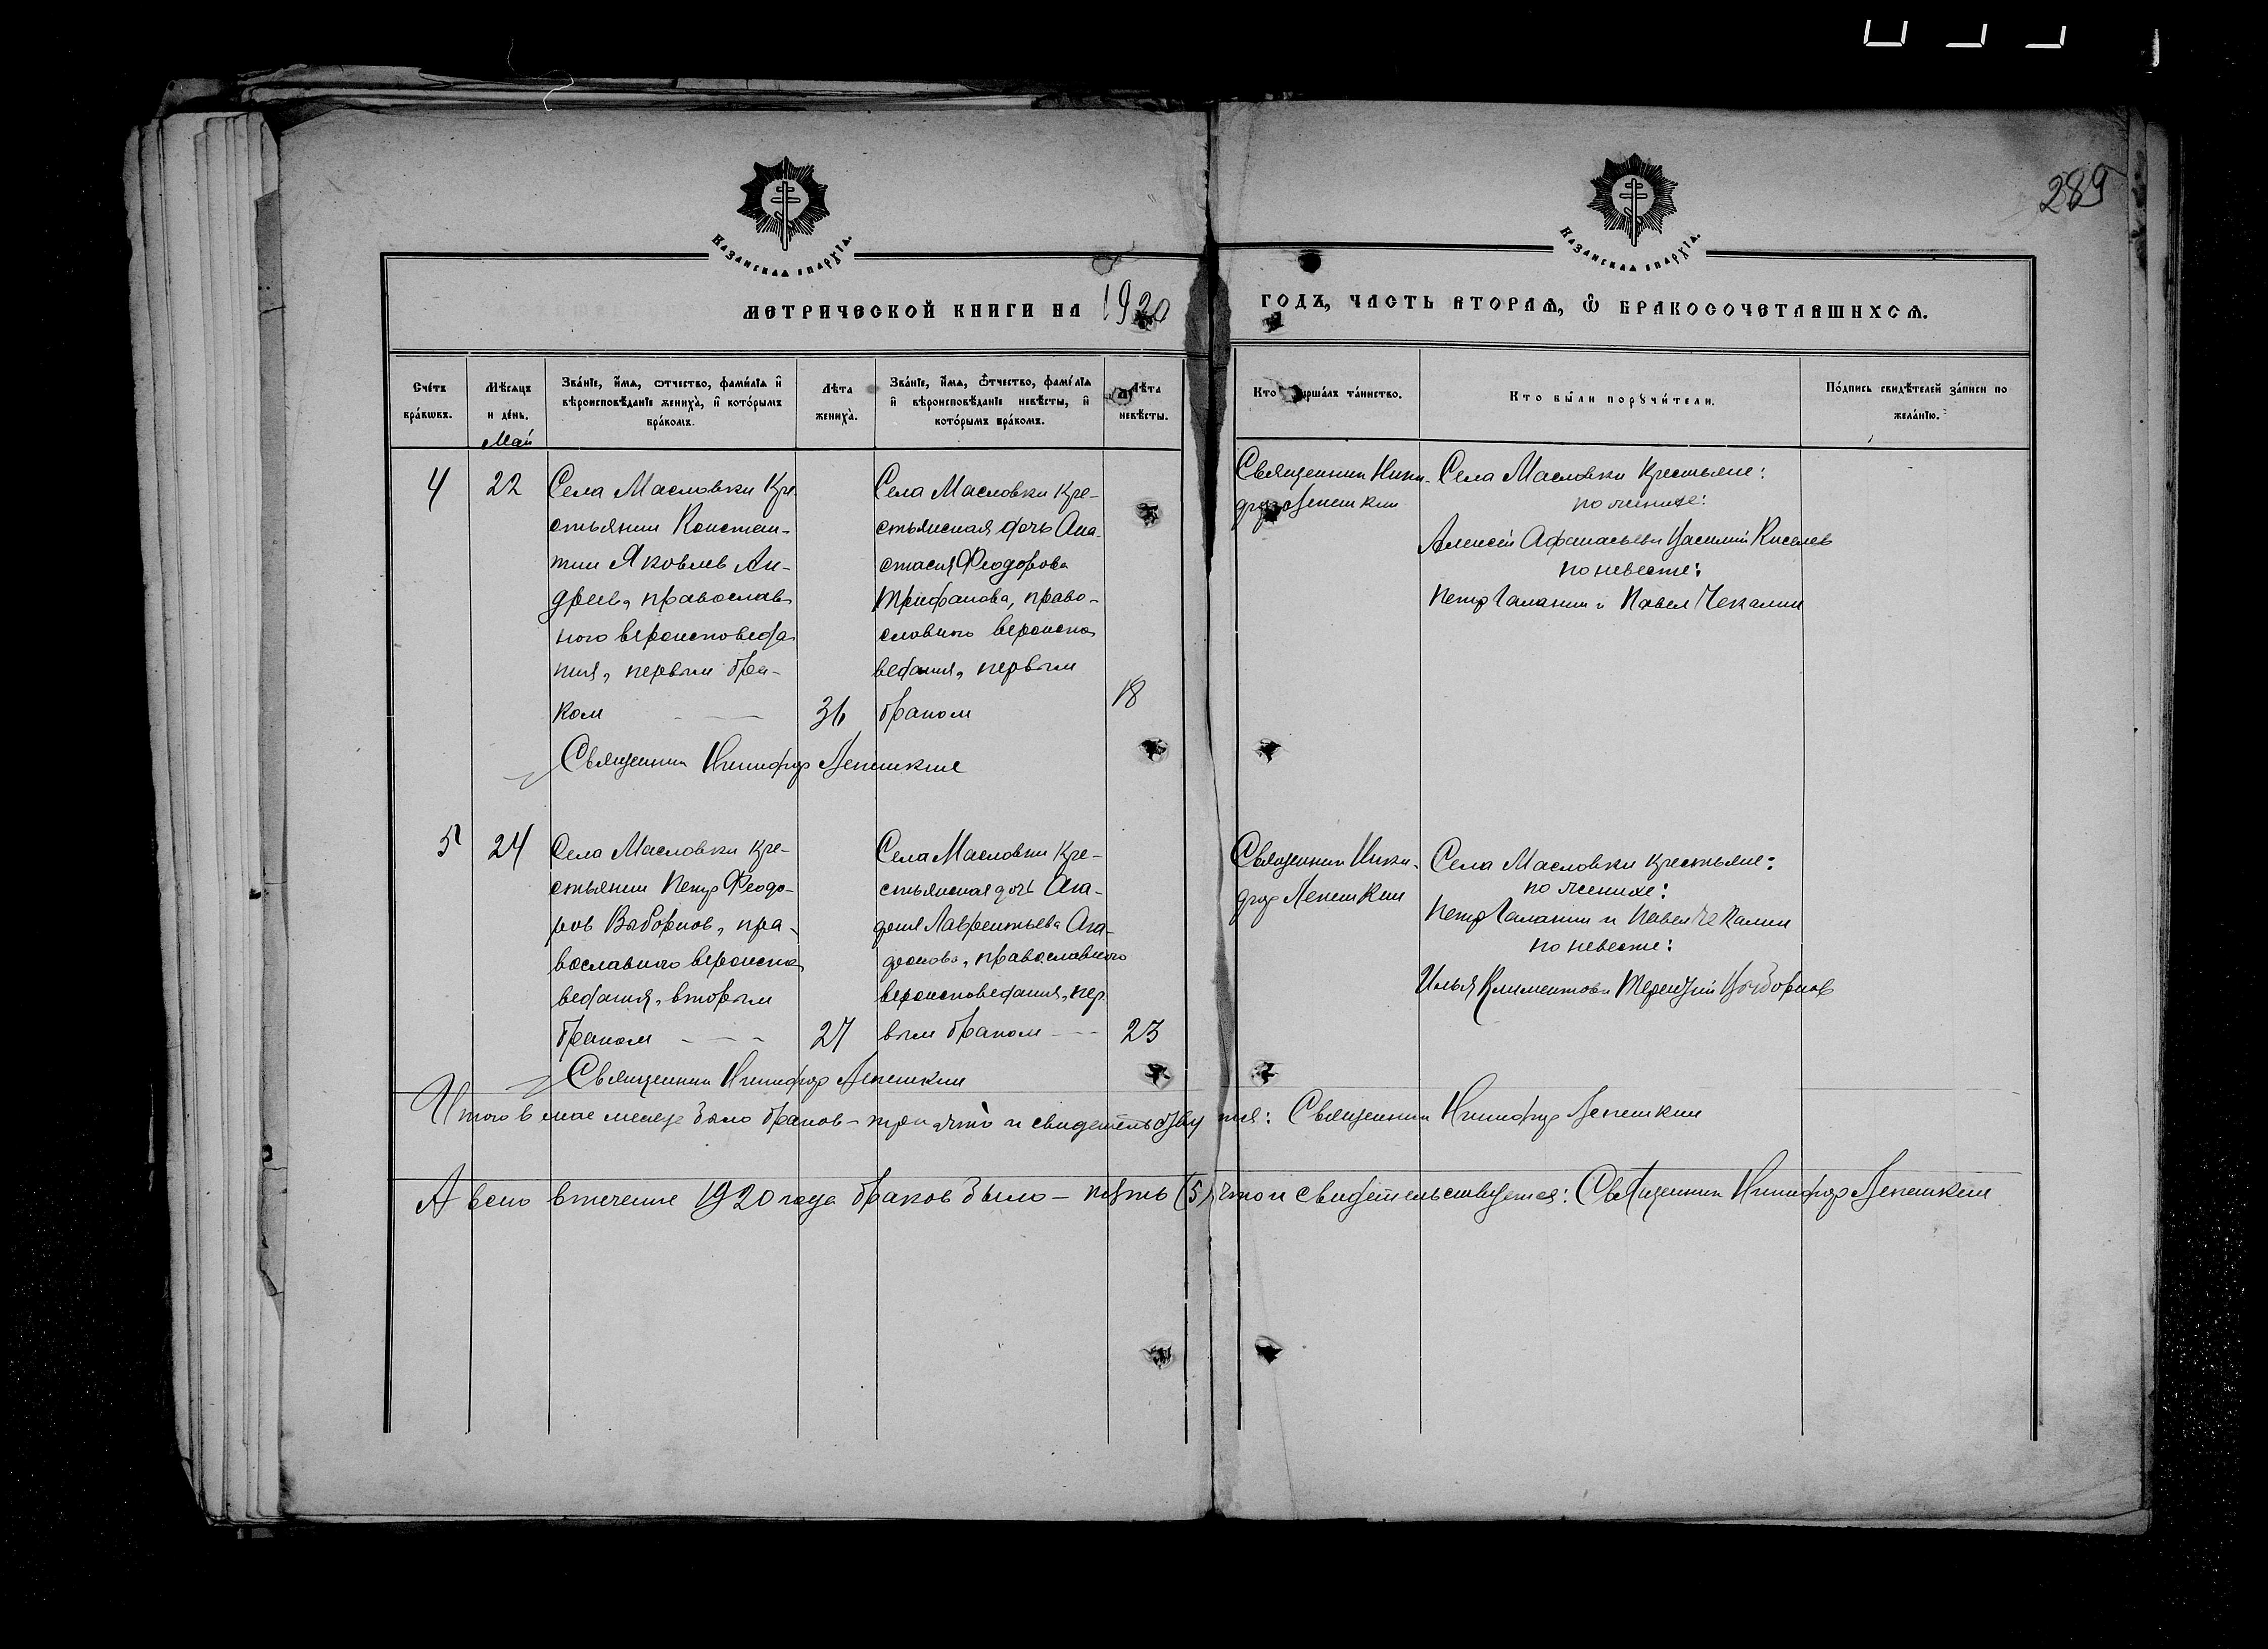 289
Казанская епархїѧ.
Казанская епархїѧ.
МЕТРИЧЕСКОЙ КНИГИ НА 1920 ГОДЪ, ЧАСТЬ ВТОРАѦ, Ѿ БРАКОСОЧЕТАВШИХСѦ.
Сче́тъ бра́кѡвъ.
Мѣсѧцъ и де́нь.
Май
Зва́нїе, и́мѧ, ѻтчество, фами́лїѧ и
вѣроисповѣданїе жениха̀, и кото́рымъ
бра́комъ.
Лѣта
жениха̀.
Зва́нїе, и́мѧ, ѻ́тчество, фами́лїѧ
и вѣроисповѣданїе невѣсты, и
кото́рымъ бра́комъ.
Лѣта
невѣсты.
Кто
та́инство.
Кто бы́ли порꙋчи́тели.
По́дпись свидѣтелей за́писи по
жела́нїю.
4
22
Села Масловки кре-
стьянин Констан-
тин Яковлев Ан-
дреев, православ
ного вероисповеда
ния, первым бра-
ком
36
Села Масловки кре-
стьянская дочь Ана-
стасия Феодорова
Трифанова, право-
славного вероиспо
ведания, первым
браком
18
Священник Ники-
фор Лепешкин
Села Масловки крестьяне:
по женихе:
Алексей Афанасьев и Василий Киселев
по невесте:
Петр Галанин и Павел Чекалин
Священник Никифор Лепешкин
5
24
Села Масловки кре-
стьянин Петр Феодо-
ров Выборнов, пра-
вославного вероиспо
ведания, вторым
браком
27
Села Масловки кре-
стьянская дочь Ага-
фия Лаврентьева Ага-
фонова, православного
вероисповедания, пер
вым браком
23
Священник Ники-
фор Лепешкин
Села Масловки крестьяне:
по женихе:
Петр Галанин и Павел Чекалин
по невесте:
Илья Климентов и Терентий Выборнов
Священник Никифор Лепешкин
Итого в мае месяце было браков - три что и свидетельствуется: Священник Никифор Лепешкин
А всего в течение 1920 года браков было - пять (5) что и свидетельствуется: Священник Никифор Лепешкин